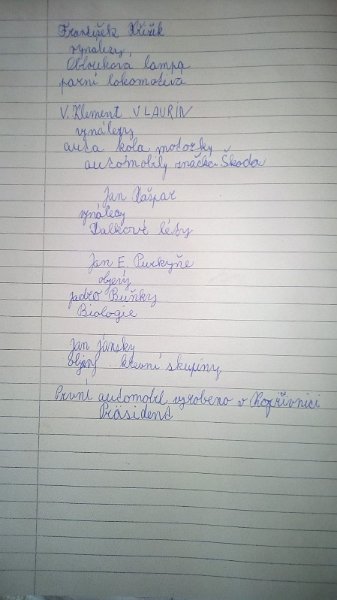 František Křižík
vynálezy
Oblouková lampa
parní lokomotiva
V. Klement V LAURIN
vynálezy
auta kola motorky
automobily značka Škoda
Jan Kašpar
vynálezy
Dálkové léty
Jan E. Purkyňe
objevy
jádro Buňky
Biologie
Jan Jánsky
objevy krevní skupiny
První automobil vyrobeno v Kopřivnici
Präsident